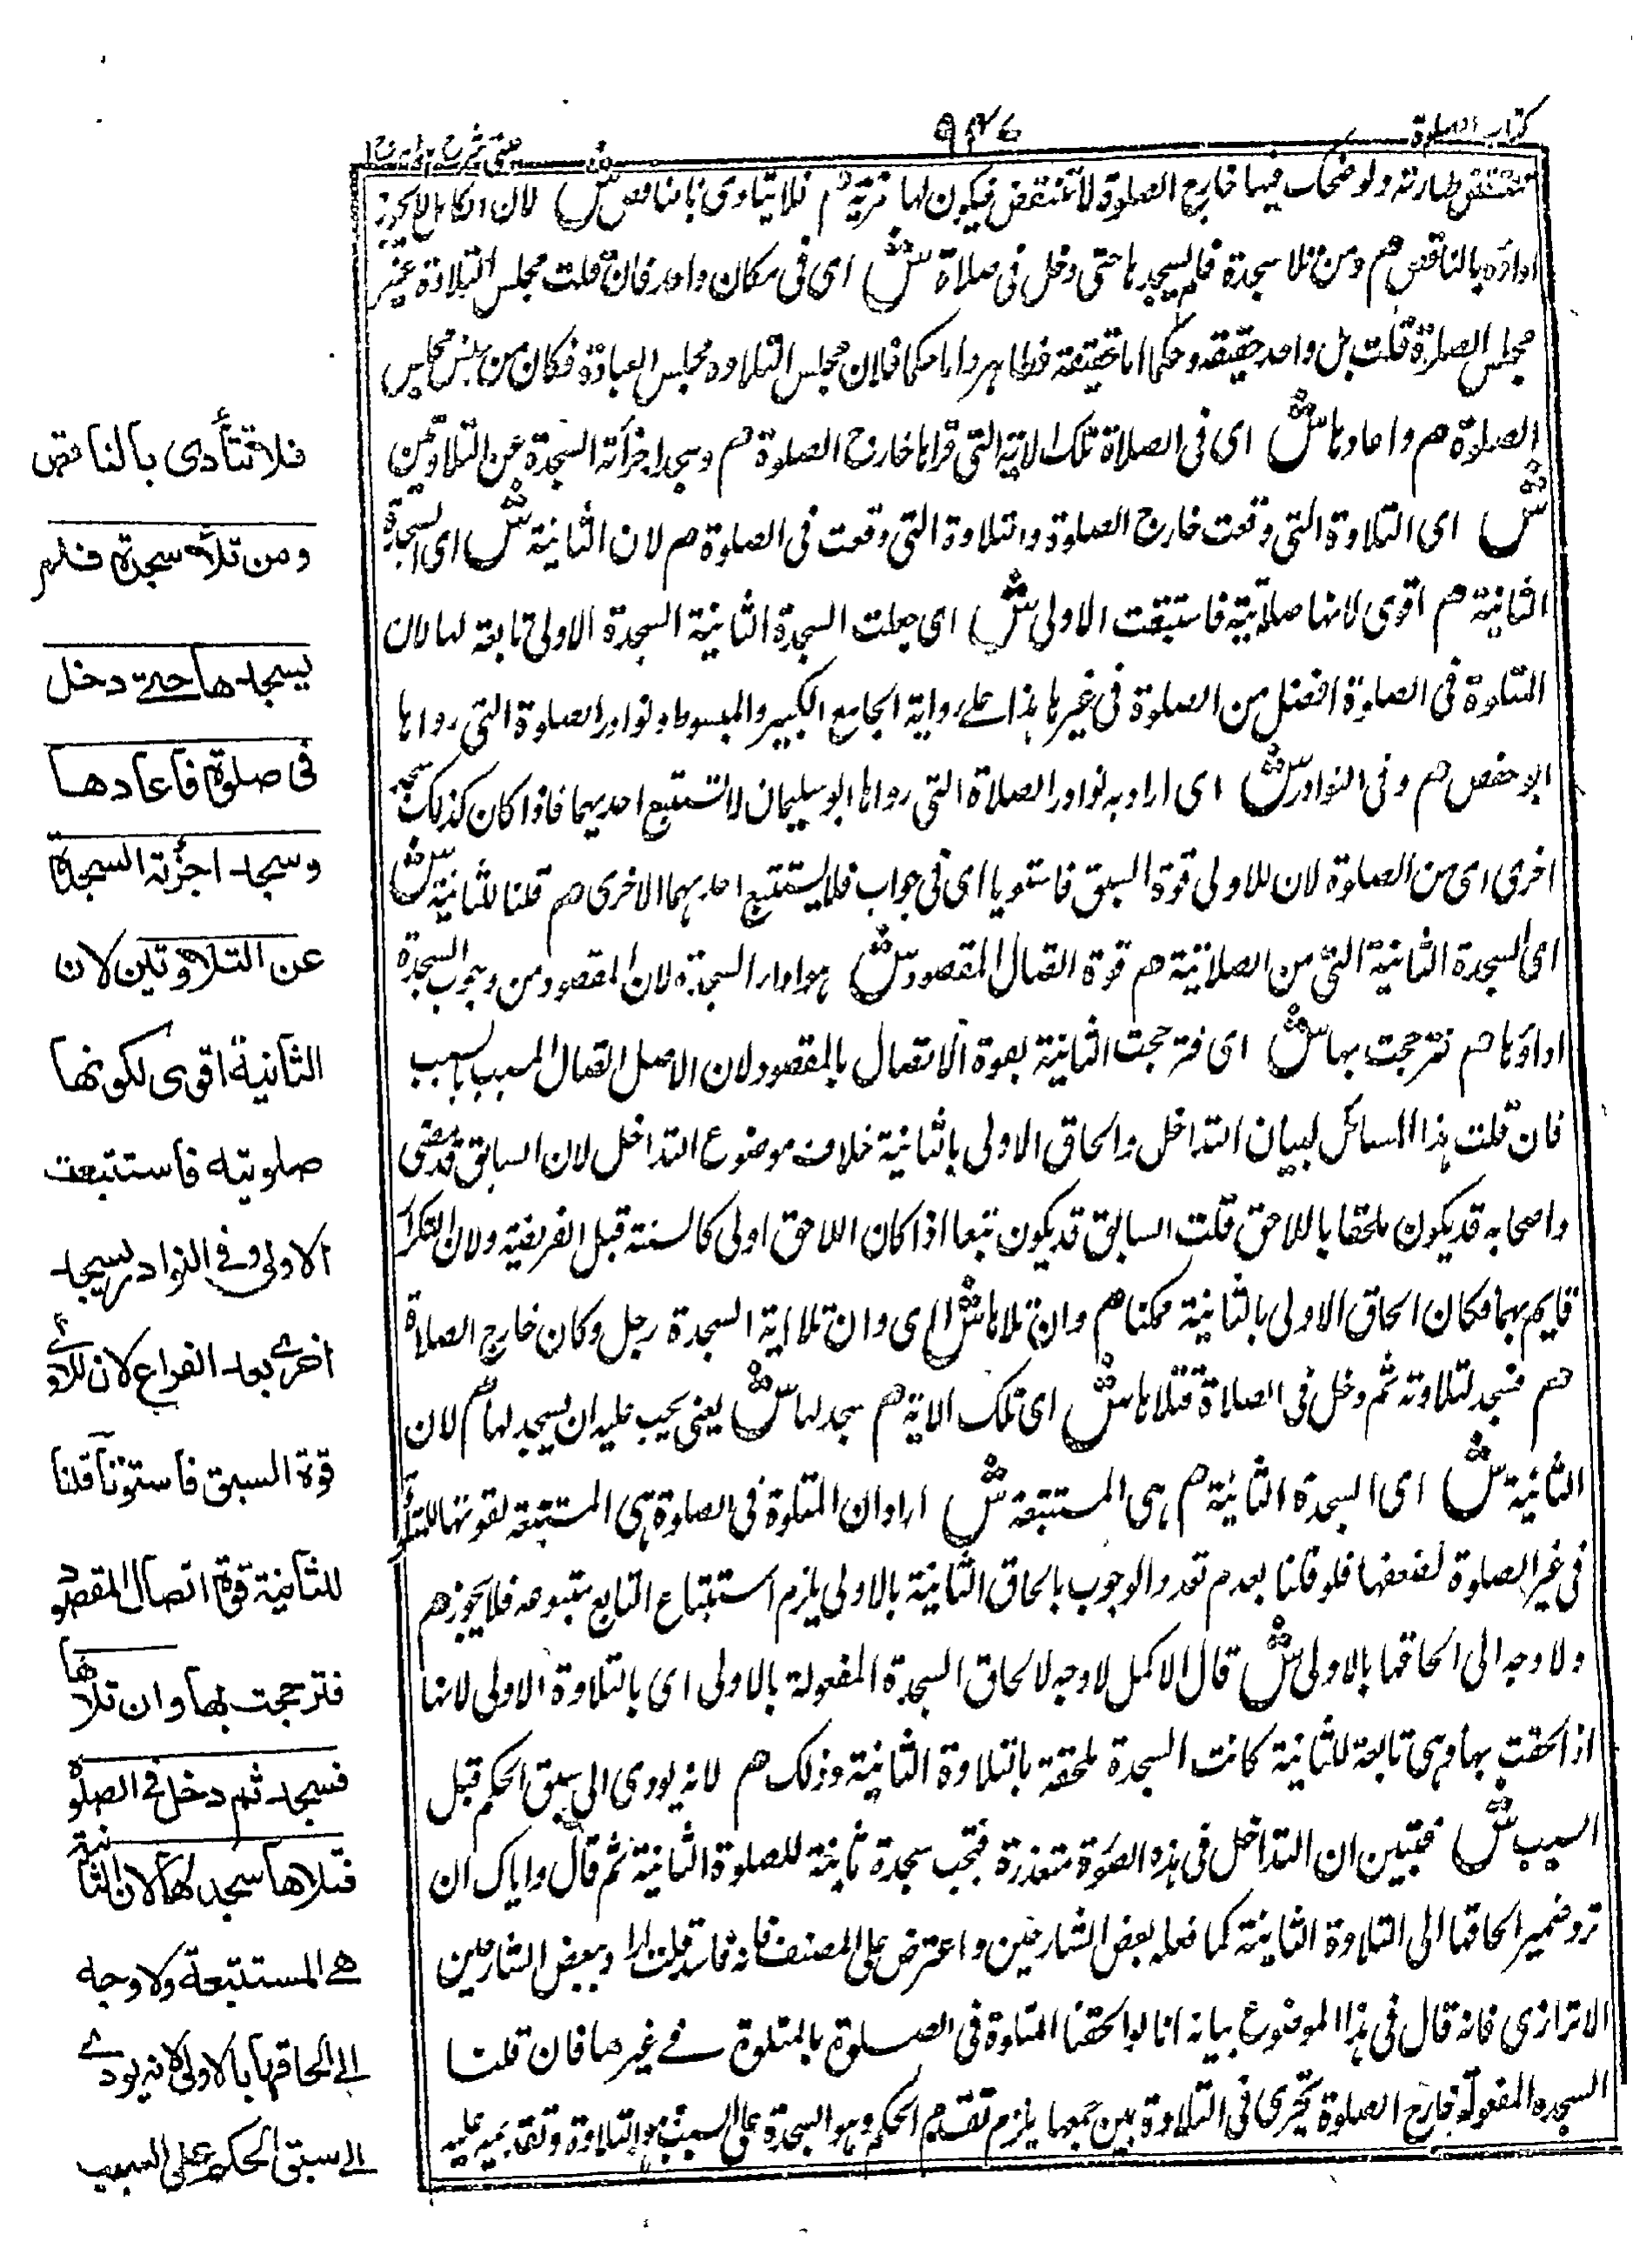 كتاب الصلوة
٩٣٤
عينى شرح هداية ج١
تنتقض طهارته ولو ضحك فيها خارج الصلوة لا تنتقض فيكون لها مزية م فلا يتأدى بالناقص ش لان الكامل لا يجوز
اداؤه بالناقص م ومن تلا سجدة فلم يسجدها حتى دخل فى صلاة ش اى فى مكان واحد فان قلت مجلس التلاوة غير
مجلس الصلوة قلت بل واحد حقيقة وحكما اما حقيقة فظاهر واما حكما فلان مجلس التلاوة مجلس العبادة فكان من جنس مجلس
الصلوة م واعادها ش اى فى الصلاة تلك الاية التى قرأها خارج الصلوة م وسجد اجزأته السجدة عن التلاوتين
ش اى التلاوة التى وقعت خارج الصلوة والتلاوة التى وقعت فى الصلوة م لان الثانية ش اى السجدة
الثانية م اقوى لانها صلاتية فاستتبعت الاولى ش اى جعلت السجدة الثانية السجدة الاولى تابعة لها لان
المتلوة فى الصلوة افضل من الصلوة فى غيرها هذا على رواية الجامع الكبير والمبسوط ونوادر الصلوة التى رواها
ابو حفص م وفى النوادر ش اى اراد به نوادر الصلاة التى رواها ابو سليمان لا تستتبع احديهما فاذا كان كذلك سجد
اخرى اى من الصلوة لان للاولى قوة السبق فاستويا اى فى جواب فلا يستتبع احديهما الاخرى م قلنا للثانية ش
اى السجدة الثانية التى من الصلاتية م قوة اتصال المقصود ش هو اداء السجدة لان المقصود من وجوب السجدة
اداؤها م فترجحت بها ش اى فترجحت الثانية بقوة الاتصال بالمقصود لان الاصل اتصال المسبب بالسبب
فان قلت هذا المسائل لبيان التداخل والحاق الاولى بالثانية خلاف موضوع التداخل لان السابق قد مضى
واصحابه قد يكون ملحقا باللاحق قلت السابق قد يكون تبعا اذا كان اللاحق اولى كالسنة قبل الفريضة ولان التكرار
قايم بهما فكان الحاق الاولى بالثانية ممكنا م وان تلاها ش اى وان تلا اية السجدة رجل وكان خارج الصلاة
م فسجد لتلاوته ثم دخل فى الصلاة فتلاها ش اى تلك الاية م سجد لها ش يعنى يجب عليه ان يسجد لها م لان
الثانية ش اى السجدة الثانية م هى المستتبعة ش اراد ان المتلوة فى الصلوة هى المستتبعة لقوتها للمتلوة
فى غير الصلوة لضعفها فلو قلنا بعدم تعدد الوجوب بالحاق الثانية بالاولى يلزم استتباع التابع متبوعه فلا يجوز م
ولا وجه الى الحاقها بالاولى ش قال الاكمل لا وجه لالحاق السجدة المفعولة بالاولى اى بالتلاوة الاولى لانها
اذا لحقت بها وهى تابعة للثانية كانت السجدة ملحقة بالتلاوة الثانية وذلك م لانه يودى الى سبق الحكم قبل
السبب ش فتبين ان التداخل فى هذه الصورة متعذرة فتجب سجدة ثانية للصلوة الثانية ثم قال واياك ان
ترد ضمير الحاقها الى التلاوة الثانية كما فعله بعض الشارحين واعترض على المصنف فانه فاسد قلت اراد ببعض الشارحين
الاترازى فانه قال فى هذا الموضوع بيانه انا لو الحقنا المتلوة فى الصلوة بالمتلوة فى غيرها فان قلنا
السجده المفعولة خارج الصلوة تجزى فى التلاوة بين جمعها يلزم تقدم الحكم وهو السجدة على السبب هو التلاوة وتقديمه عليه
فلا تتأدى بالناقص
ومن تلا سجدة فلم
يسجدها حتى دخل
فى صلوة فاعادها
وسجد اجزأته السجدة
عن التلاوتين لان
الثانية اقوى لكونها
صلوتية فاستتبعت
الاولى وفى النوادر يسجد
اخرى بعد الفراغ لان للاولى
قوة السبق فاستوتا قلنا
للثانية قوة اتصال المقصود
فترجحت بها وان تلاها
فسجد ثم دخل فى الصلوة
فتلاها سجد لها لان الثانية
هى المستتبعة ولا وجه
الى الحاقها بالاولى لانه يودى
الى سبق الحكم على السبب